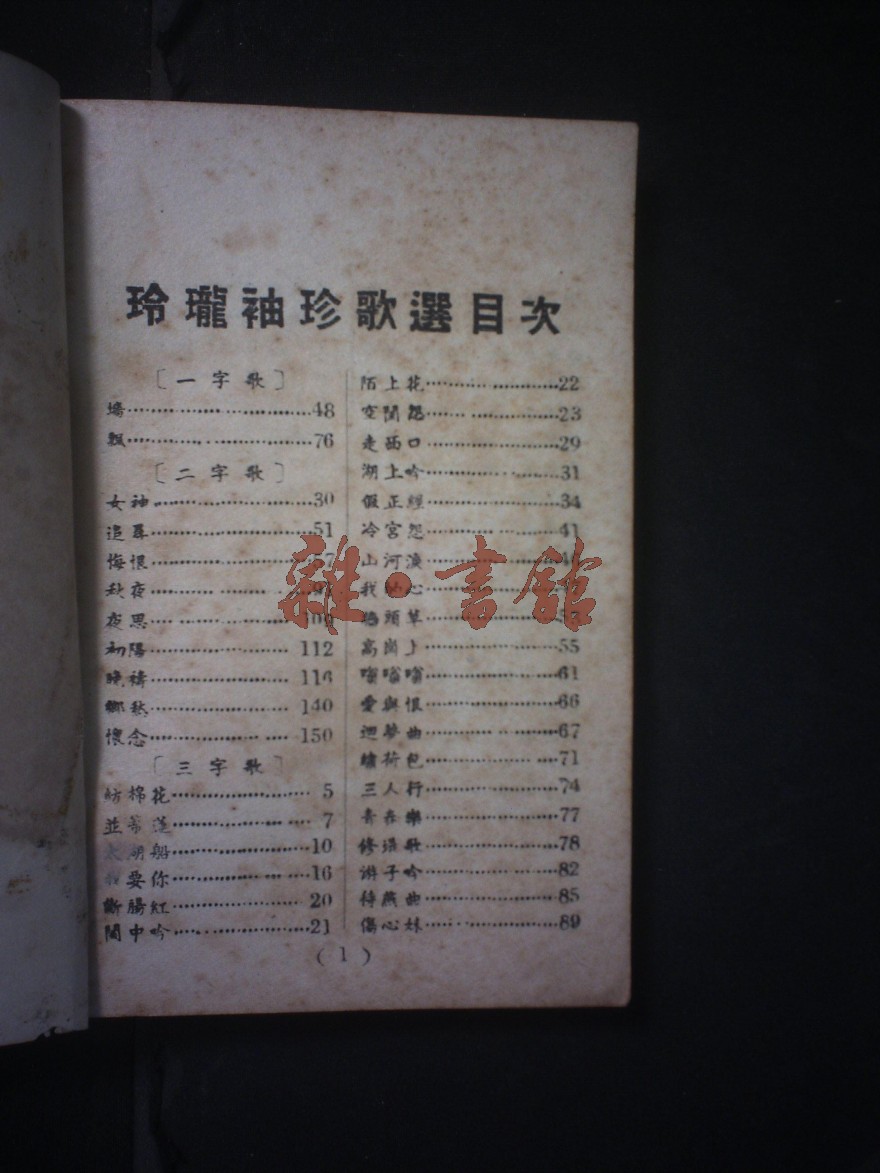 玲瓏袖珍歌選目次
〔一字歌〕
墻……48
飄……76
〔二字歌〕
女神……30
追尋……51
悔恨……7
秋夜……
夜思……
初陽……112
晚禱……116
鄉愁……140
懷念……150
〔三字歌〕
紡棉花……5
並蒂蓮……7
太湖船……10
我要你……16
斷腸紅……20
閨中吟……21
陌上花……22
空閨怨……23
走西口……29
湖上吟……31
假正經……34
冷宮怨……41
山河淚……
我的心……
牆頭草……
高崗上……55
嗡嗡嗡……61
愛與恨……66
迴夢曲……67
繡荷包……71
三人行……74
青春樂……77
修堤歌……78
游子吟……82
待燕曲……85
傷心妹……89
(1)
雜·書館